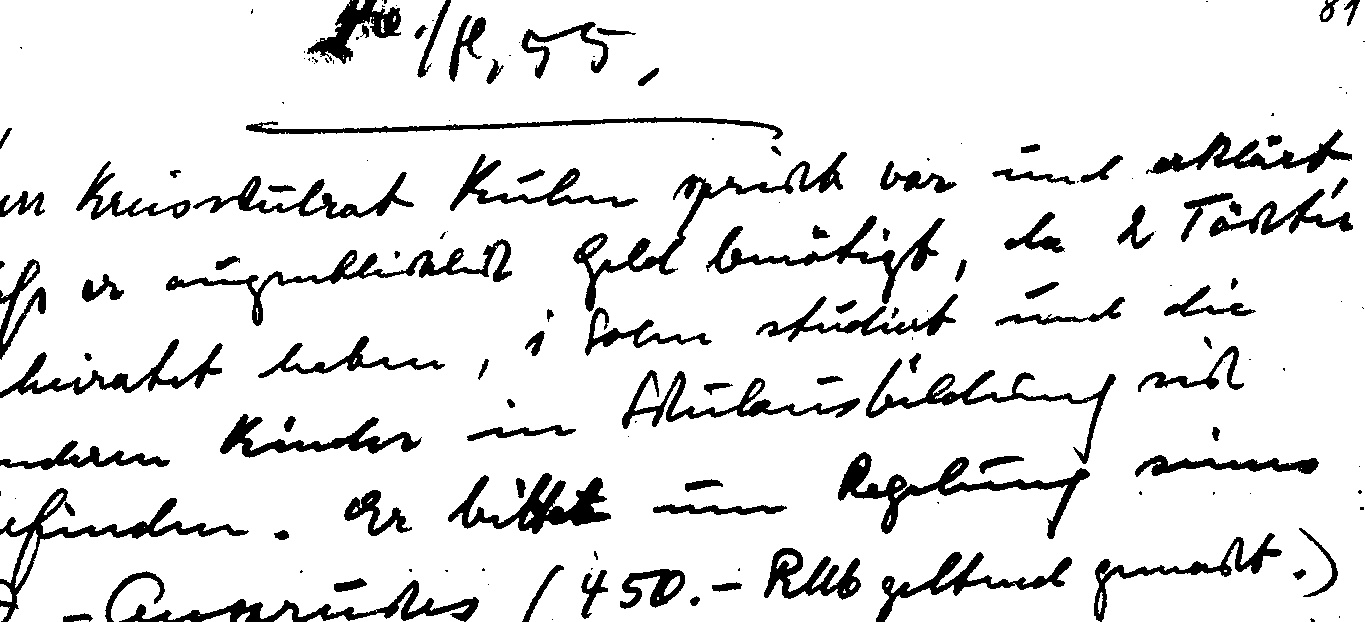 81
55.
Kreisschulrat Kühn spricht vor und erklärt,
er augenblicklich Geld benötigt, da 2 Töchter
heiratet haben, 1 Sohn studiert und die
anderen Kinder in Schulausbildung sich
befinden. Er bittet um Regelung seines
- Anspruches (450.- RM geltend gemacht.)